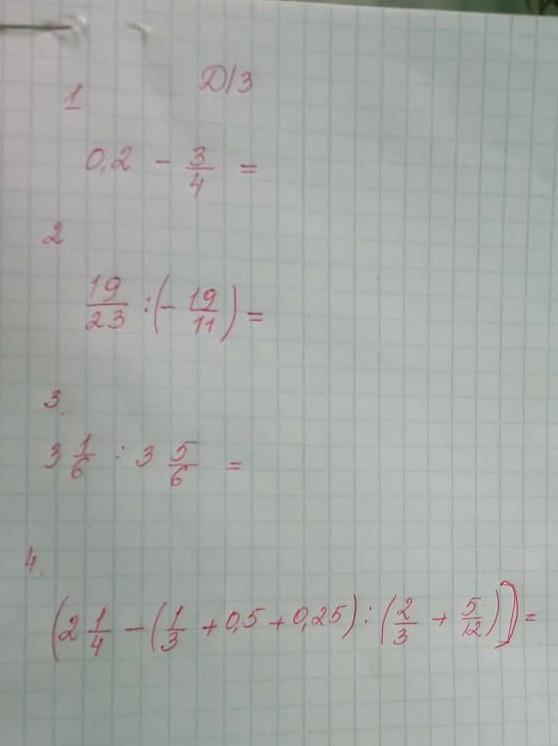 Д/З
1
0,2 - 3/4 =
2
19/23 : (- 19/11) =
3.
3 1/6 : 3 5/6 =
4.
(2 1/4 - (1/3 + 0,5 + 0,25) : (2/3 + 5/12)) =